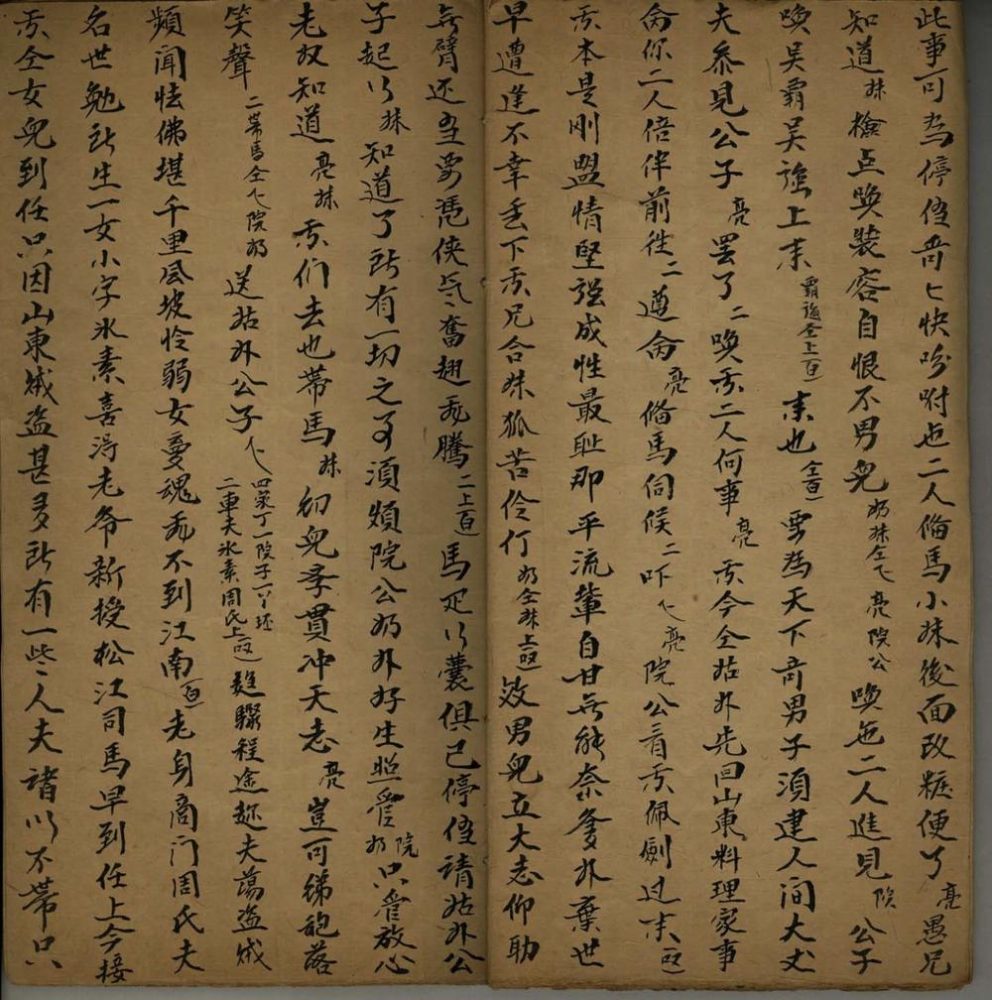 此事可為停偅奇匕快吩咐他二人俻馬小妹後面改粧便了亮愚兄
知道妹檢点喚裝容自恨不男兒奶妹仝乀亮院公喚他二人進見院公子
喚吴霸吴強上来霸強仝上白来也仝白要為天下奇男子須建人间大丈
夫叅見公子亮罢了二喚我二人何事亮我今仝姑外先回山東料理家事
命你二人倍伴前徃二遵命亮俻馬伺候二吓乀亮院公看我佩劍过来
我本是刚盟情堅强成性最耻那平流輩自甘無能奈爹外棄世
早遭逢不幸丢下我兄合妹孤苦伶仃奶仝妹上唱效男兒立大志仰助
無臂还要凴侠气奮翅飛騰二上白馬疋行囊俱已停偅請姑外公
子起行妹知道了所有一切之事須煩院公奶外好生照管院奶只管放心
老奴知道亮妹我们去也帶馬妹幼兒孝貫冲天志亮豈可绨袍落
笑聲二帶馬仝乀院奶送姑外公子乀四家丁一院子一丫环二車夫氷素周氏上唱趱驟程途趂夫蕩盗贼
頻闻怯佛堪千里风坡怜弱女夢魂飛不到江南白老身商门周氏夫
名世勉所生一女小字氷素喜浔老爷新授松江司馬早到任上今接
我仝女兒到任只因山東贼盗甚多所有一些人夫諸以不帶只